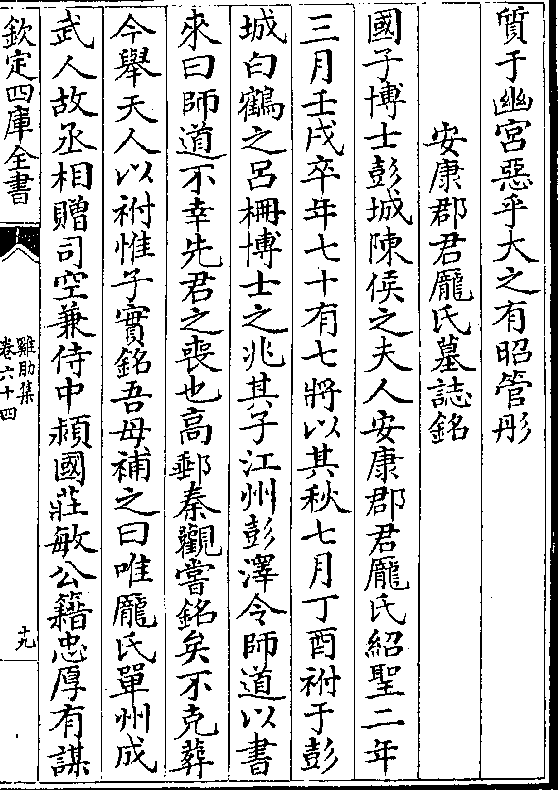 質于幽宮惡乎大之有昭管彤
安康郡君龐氏墓誌銘
國子博士彭城陳侯之夫人安康郡君龐氏紹聖二年
三月壬戌卒年七十有七將以其秋七月丁酉祔于彭
城白鶴之呂柵博士之兆其子江州彭澤令師道以書
來曰師道不幸先君之喪也高郵秦觀嘗銘矣不克葬
今舉天人以祔惟子實銘吾母補之曰唯龐氏單州成
武人故丞相贈司空兼侍中潁國莊敏公籍忠厚有謀
欽定四庫全書
雞肋集
卷六十四
十九